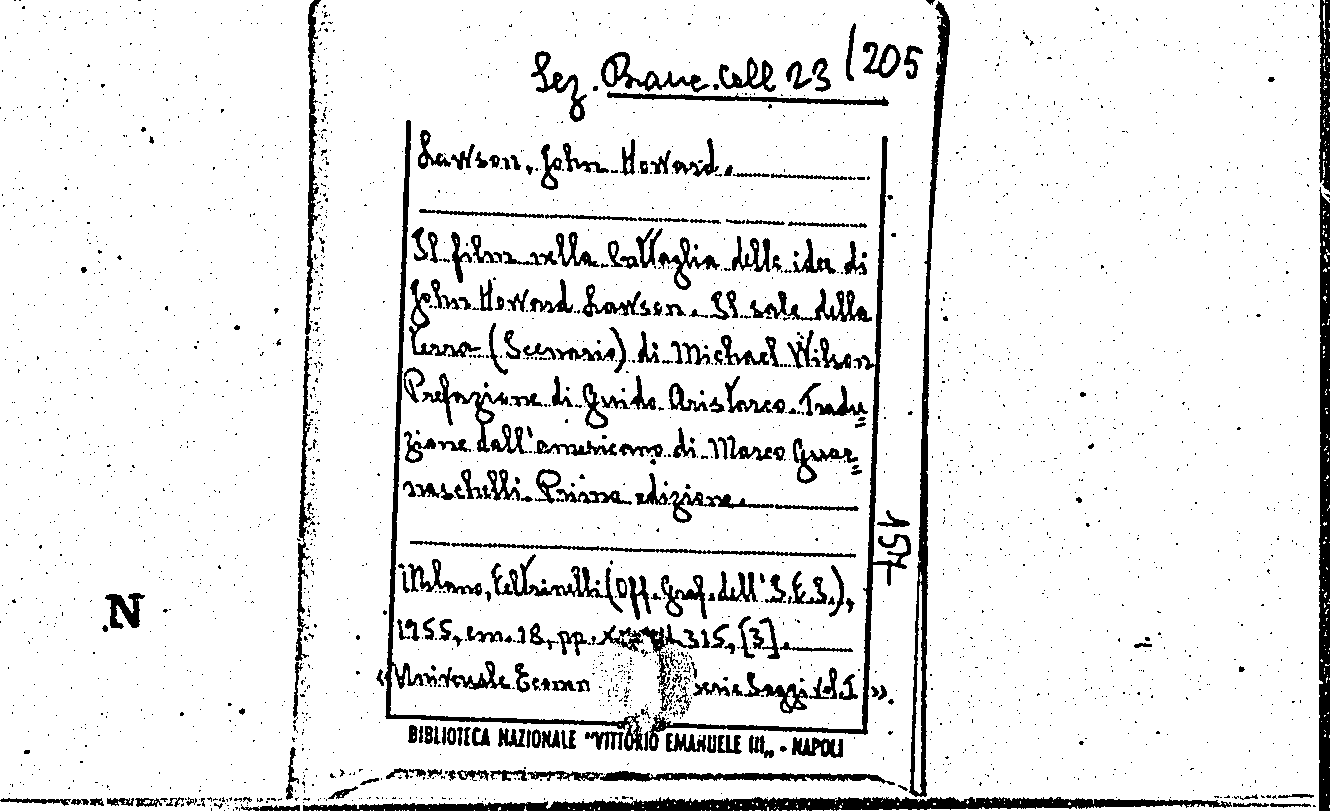 Sez. Branc. Coll 23 /205
Lawson, John Howard.
Il film nella battaglia delle idee di
John Howard Lawson. Il sale della
terra (Scenario) di Michael Wilson
Prefazione di Guido Aristarco. Tradu=
zione dall'americano di Marco Guar=
naschelli. Prima edizione.
154
Milano, Feltrinelli (Off. Graf. dell'S.E.S.),
1955, cm. 18, pp. 315, [3].
«Universale Econom serie Saggi vol. I».
BIBLIOTECA NAZIONALE "VITTORIO EMANUELE III„ - NAPOLI
N